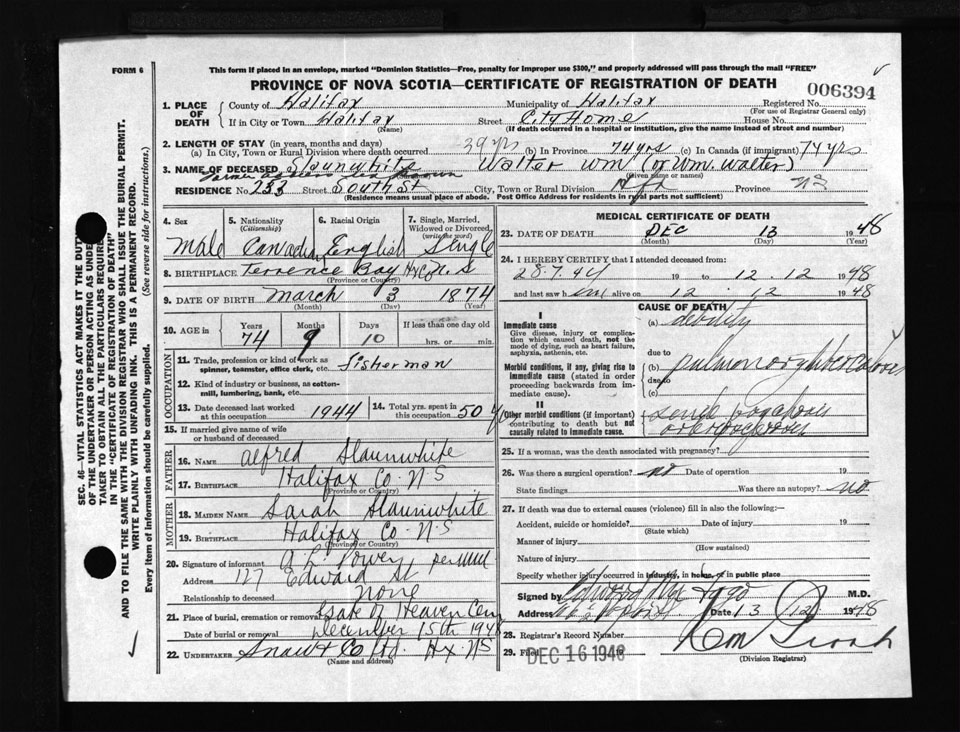 FORM 6
This form if placed in an envelope, marked "Dominion Statistics—Free, penalty for improper use $300," and properly addressed will pass through the mail "FREE"
PROVINCE OF NOVA SCOTIA—CERTIFICATE OF REGISTRATION OF DEATH
006394
1. PLACE OF DEATH
County of Halifax Municipality of Halifax Registered No.
(For use of Registrar General only)
If in City or Town Halifax Street City Home House No.
(Name) (If death occurred in a hospital or institution, give the name instead of street and number)
2. LENGTH OF STAY (in years, months and days)
(a) In City, Town or Rural Division where death occurred 39 yrs (b) In Province 74 yrs (c) In Canada (if immigrant) 74 yrs
3. NAME OF DECEASED Slaunwhite Walter Wm (or Wm. Walter)
(Given name or names)
RESIDENCE No. 233 Street South St City, Town or Rural Division Hfx Province NS
(Residence means usual place of abode. Post Office Address for residents in rural parts not sufficient)
4. Sex Male
5. Nationality (Citizenship) Canadian
6. Racial Origin English
7. Single, Married, Widowed or Divorced (write the word) Single
8. BIRTHPLACE Terrence Bay Hx Co N.S
(Province or Country)
9. DATE OF BIRTH March 3 1874
(Month) (Day) (Year)
10. AGE in Years Months Days If less than one day old
74 9 10 hrs. or min.
OCCUPATION
11. Trade, profession or kind of work as spinner, teamster, office clerk, etc. fisherman
12. Kind of industry or business, as cotton-mill, lumbering, bank, etc.
13. Date deceased last worked at this occupation 1944
14. Total yrs. spent in this occupation 50 yr
15. If married give name of wife or husband of deceased
FATHER
16. NAME Alfred Slaunwhite
17. BIRTHPLACE Halifax Co. N.S
(Province or Country)
MOTHER
18. MAIDEN NAME Sarah Slaunwhite
19. BIRTHPLACE Halifax Co. N.S
(Province or Country)
20. Signature of informant A L Power per
Address 127 Edward St
Relationship to deceased none
21. Place of burial, cremation or removal Gate of Heaven Cem
Date of burial or removal December 15th 1948
22. UNDERTAKER Snow & Co Ltd. Hx. NS
(Name and address)
MEDICAL CERTIFICATE OF DEATH
23. DATE OF DEATH DEC 13 1948
(Month) (Day) (Year)
24. I HEREBY CERTIFY that I attended deceased from:
28.7.44 19 to 12.12 1948
and last saw him alive on 12. 12 1948
CAUSE OF DEATH
I
Immediate cause
Give disease, injury or complication which caused death, not the mode of dying, such as heart failure, asphyxia, asthenia, etc.
(a) debility
due to
Morbid conditions, if any, giving rise to immediate cause (stated in order proceeding backwards from immediate cause).
(b) pulmonary tuberculosis
due to
(c)
II
Other morbid conditions (if important) contributing to death but not causally related to immediate cause.
senile psychosis
25. If a woman, was the death associated with pregnancy?
26. Was there a surgical operation? no Date of operation 19
State findings Was there an autopsy? no
27. If death was due to external causes (violence) fill in also the following:—
Accident, suicide or homicide? Date of injury 19
(State which)
Manner of injury
(How sustained)
Nature of injury
Specify whether injury occurred in industry, in home, or in public place
Signed by M.D.
Address Date 13 12 1948
28. Registrar's Record Number
29. Filed DEC 16 1948
(Division Registrar)
SEC. 46—VITAL STATISTICS ACT MAKES IT THE DUTY OF THE UNDERTAKER OR PERSON ACTING AS UNDERTAKER TO OBTAIN ALL THE PARTICULARS REQUIRED IN THE "CERTIFICATE OF REGISTRATION OF DEATH" AND TO FILE THE SAME WITH THE DIVISION REGISTRAR WHO SHALL ISSUE THE BURIAL PERMIT.
WRITE PLAINLY WITH UNFADING INK. THIS IS A PERMANENT RECORD.
Every item of information should be carefully supplied. (See reverse side for instructions.)